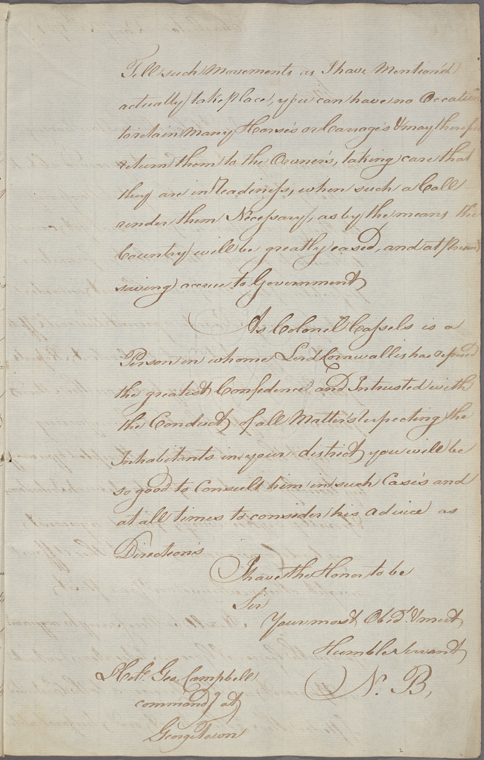 Till such Movements as I have Mention'd
actually take place, you can have no Occation
to retain many Horse's or Carrage's & may therefore
return them to the Owner's, taking care that
they are in readiness, when such a Call
render them Necessary, as by the means the
Country will be greatly eased, and at
saving accrue to Government
As Colonel Cassels is a
Person in whome Lord Cornwallis has reposed
the greatest Confedence and Intrusted with
the Conduct of all Matters respecting the
Inhabitents in your district you will be
so good to Consult him in such Case's and
at all times to consider his advice as
Direction's
I have the Honor to be
Sir
Your most Obed. & most
Humble Servant
N. B,
Geo. Campbell
command.g at
George Town